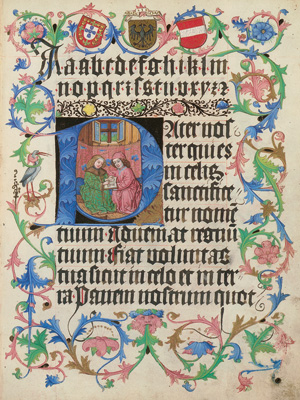 A a a b c d e f g h i k l m
n o p q r ı s s t u v x y z
Pater nos
ter qui es
in celis
sanctifice
tur nomē
tuum Adueniat regnū
tuum Fiat voluntas
tua sicut in celo et in ter
ra Panem nostrum quot